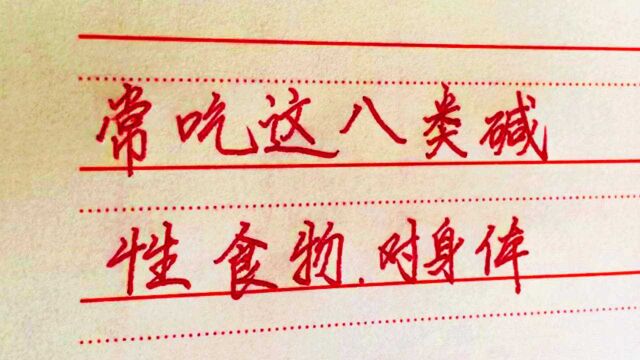 常吃这八类碱
性食物.对身体